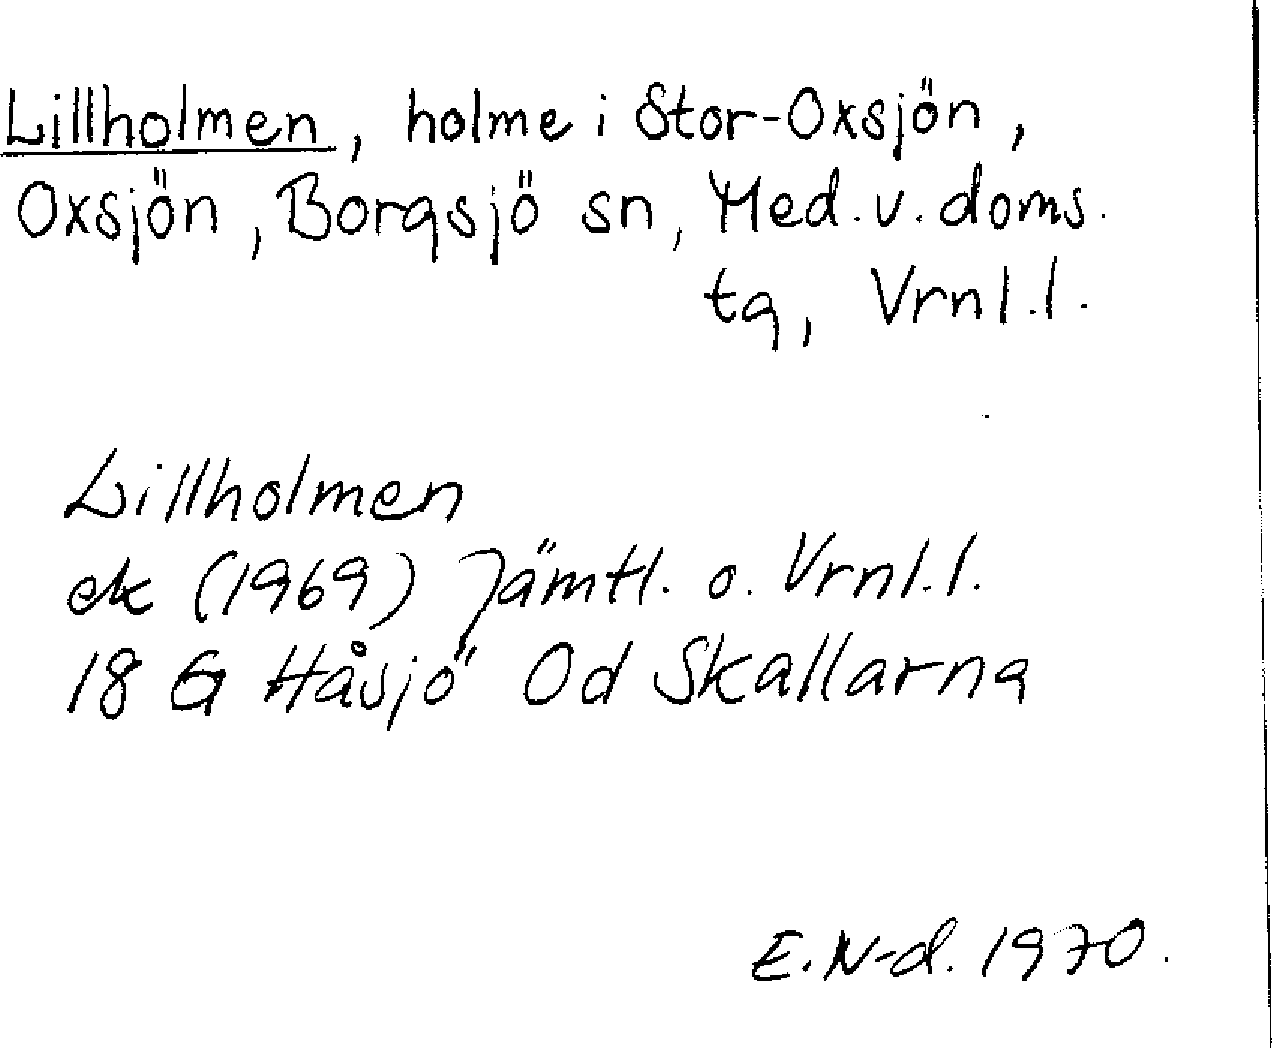 Lillholmen, holme i Stor-Oxsjön,
Oxsjön, Borgsjö sn, Med. v. doms.
tg, Vrnl.l.
Lillholmen
ek (1969) Jämtl. o. Vrnl.l.
18 G Håsjö Od Skallarna
E. N-d. 1970.